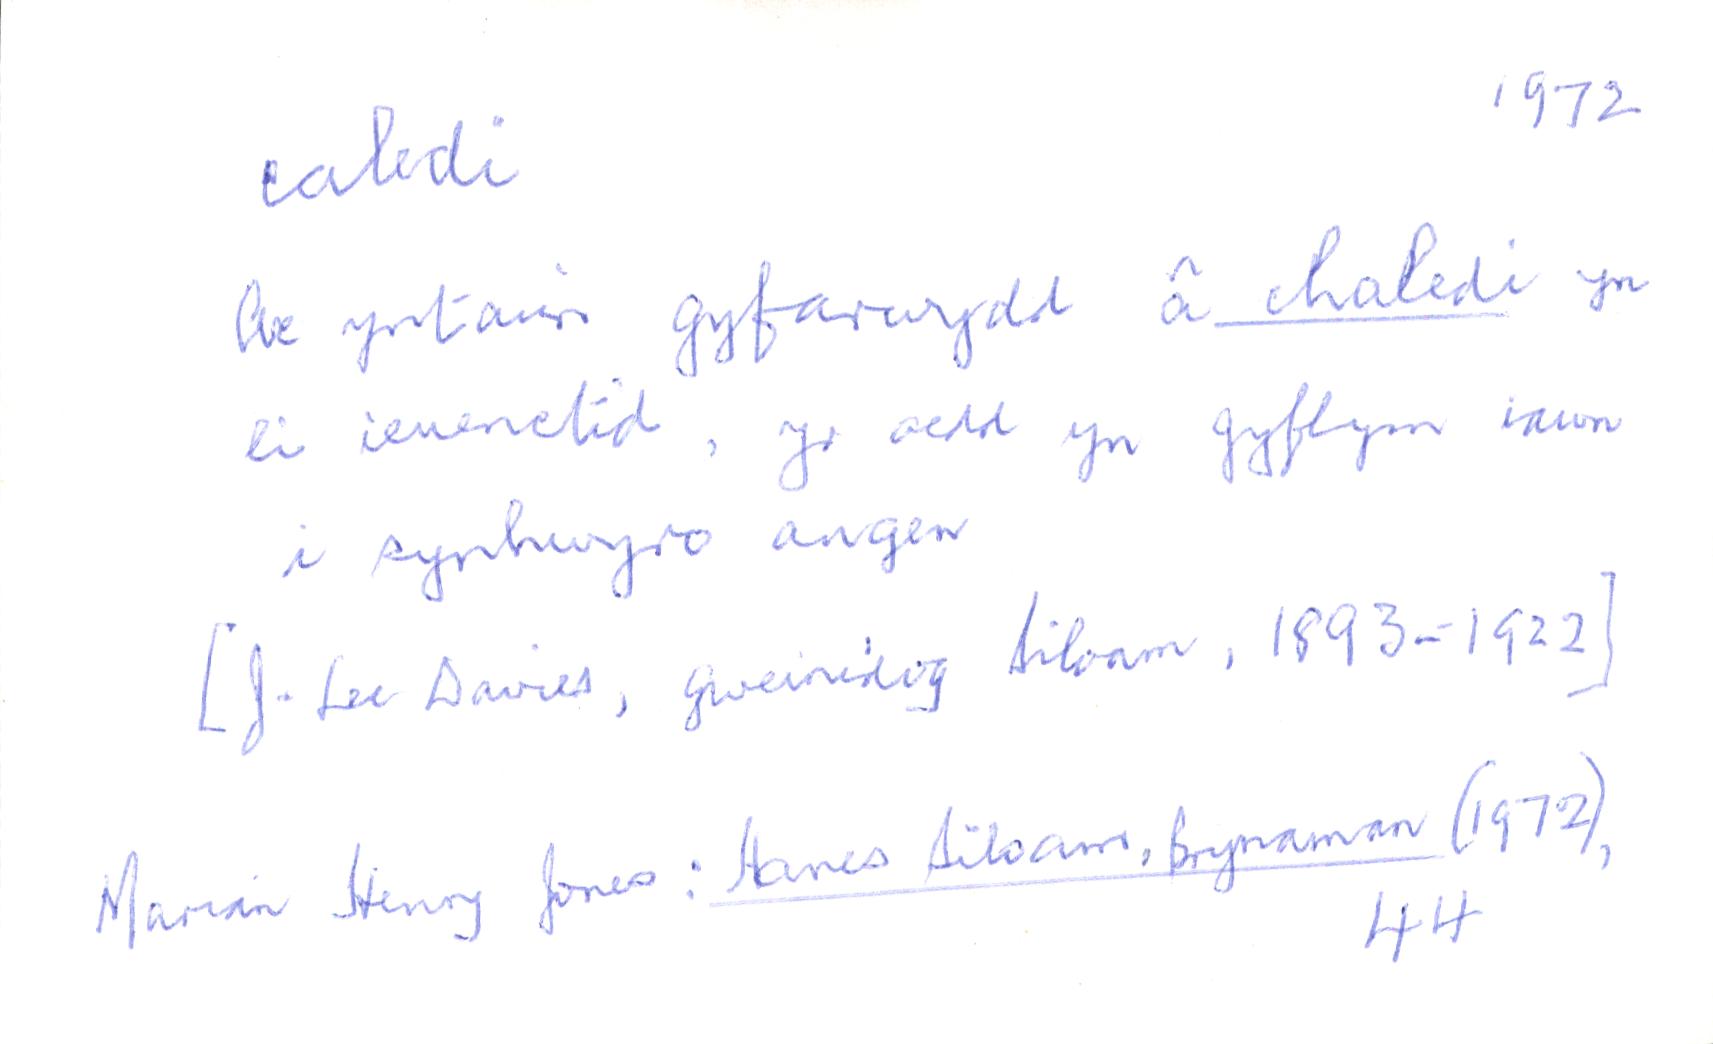 1972
caledi
Ac yntau'n gyfarwydd â chaledi yn
ei ieuenctid, yr oedd yn gyflym iawn
i synhwyro angen
[J. Lee Davies, gweinidog Siloam, 1893-1922]
Marian Henry Jones: Hanes Siloam, Brynaman (1972),
44